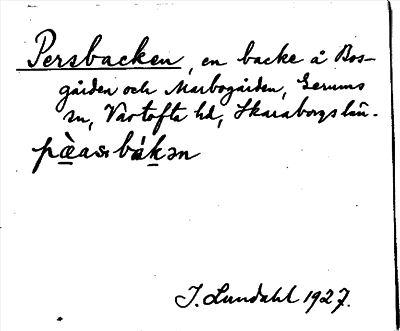 Persbacken, en backe å Bos-
gården och Marbogården, Gerums
sn, Vartofta hd, Skaraborgs län.
pæ̀as bákən
J. Lundahl 1927.